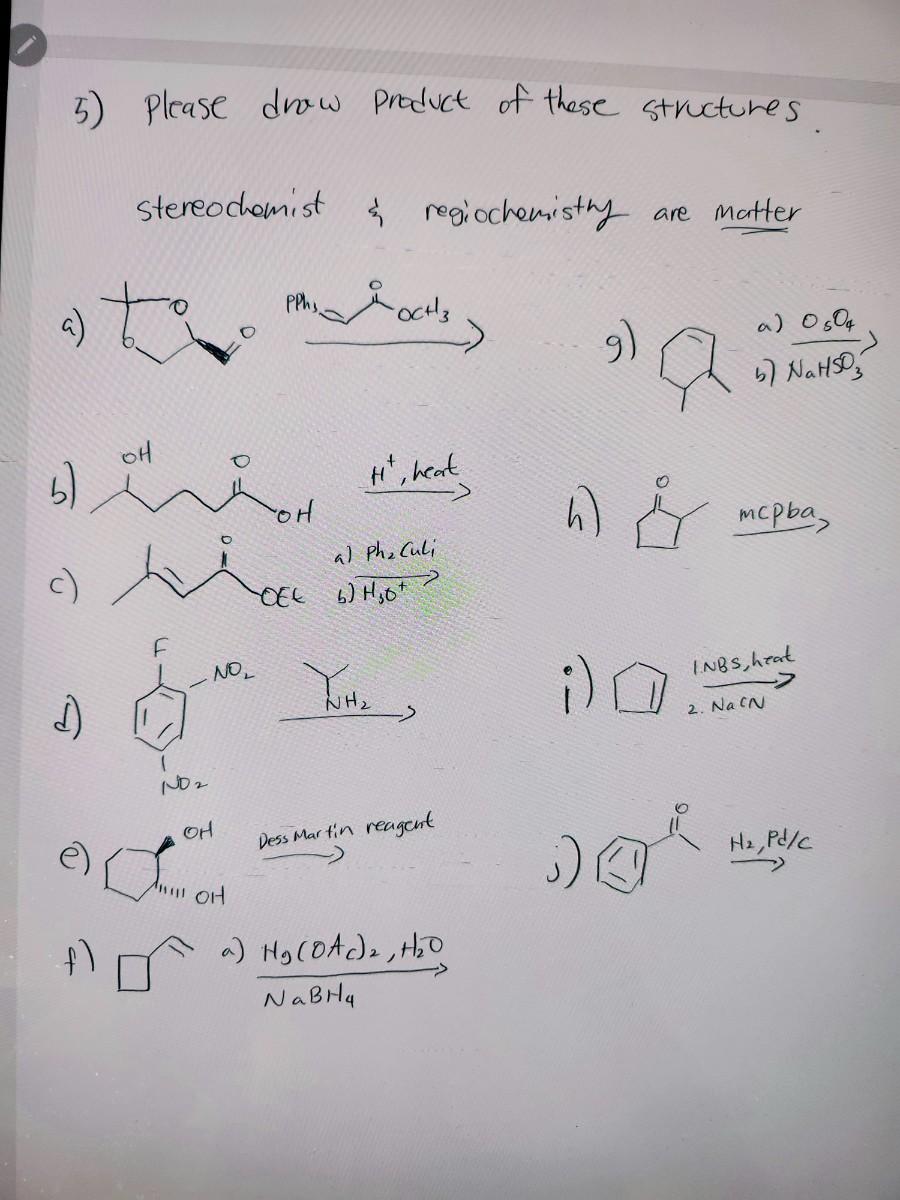 5) Please draw Product of these structures.
stereochemist & regiochemistry are matter
a) O O O PPh3 O OCH3
g) a) OsO4
b) NaHSO3
b) OH O OH H+, heat
h) O mcpba
c) O OEt a) Ph2CuLi
b) H3O+
d) F NO2 NO2 NH2
i) 1. NBS, heat
2. NaCN
e) OH OH Dess Martin reagent
j) O H2, Pd/C
f) a) Hg(OAc)2, H2O
NaBH4